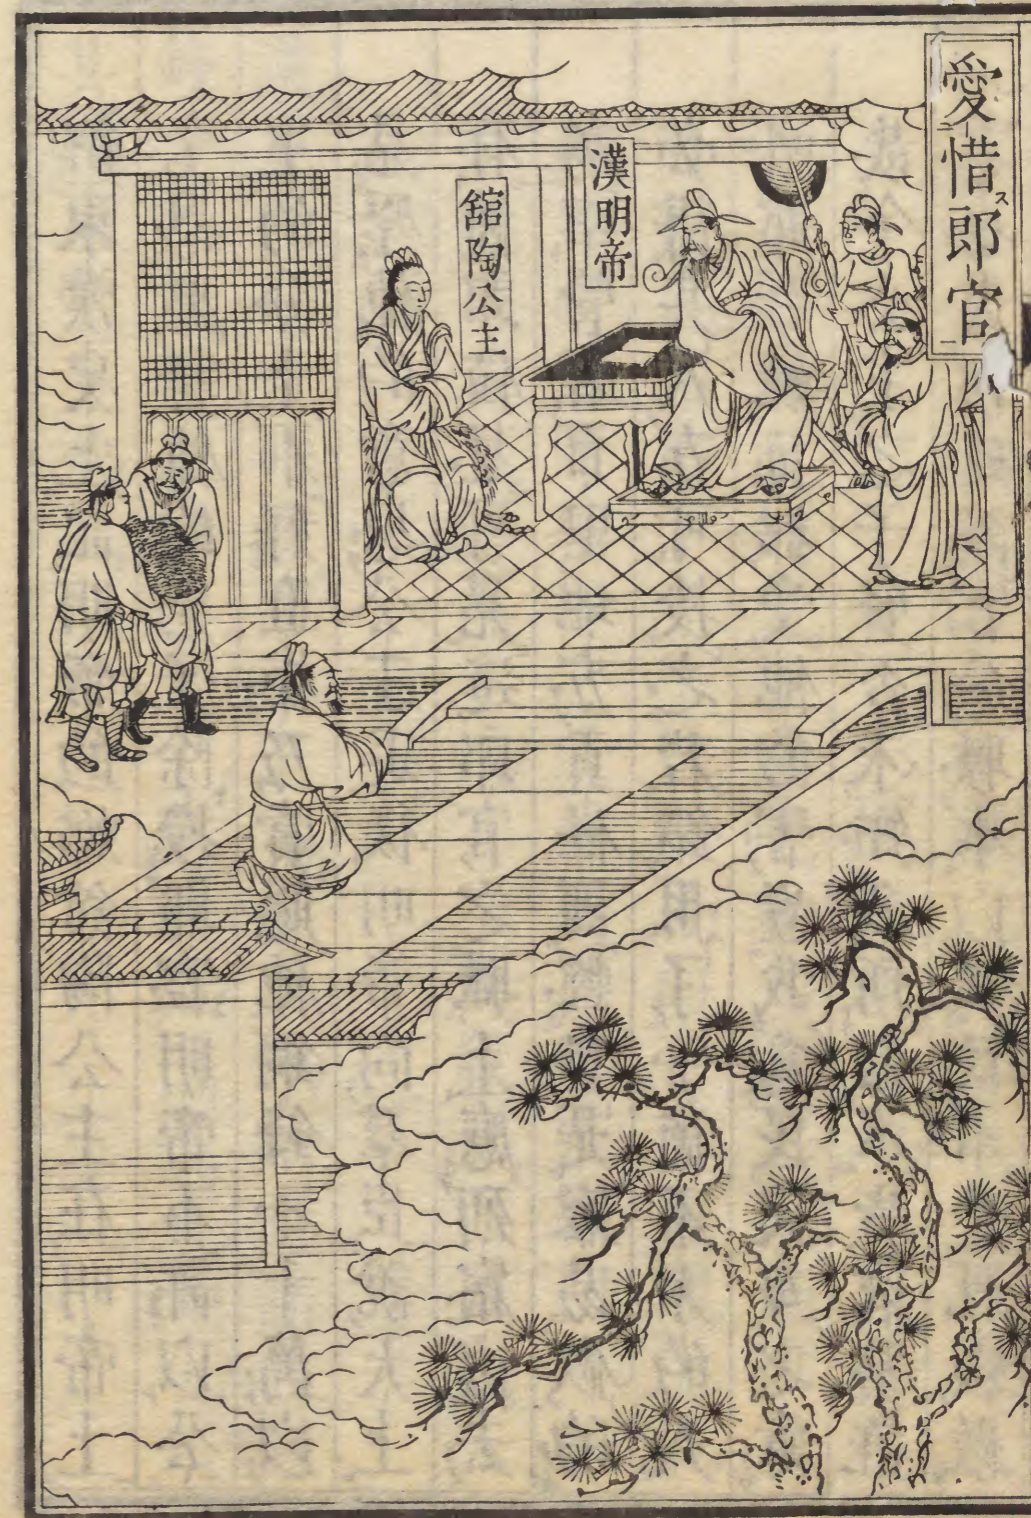 愛惜ス郎官
漢明帝
舘陶公主